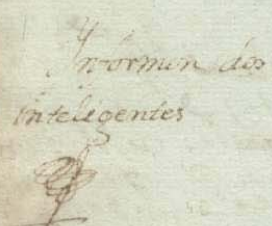 Informen dos
inteligentes